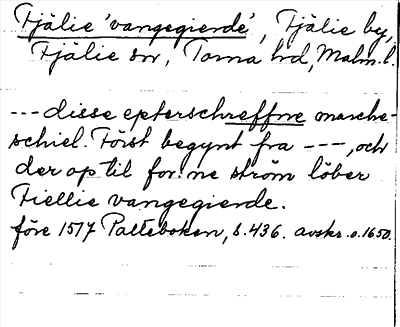 Fjälie 'vangegierde', Fjälie by,
Fjälie sn, Torna hd, Malm. l.
---disse epterschreffne marche-
schiel. Först begynt fra ---, och
der op til for:ne ström löber
Fiellie vangegierde.
före 1517 Palteboken, s. 436. avskr. o. 1650.